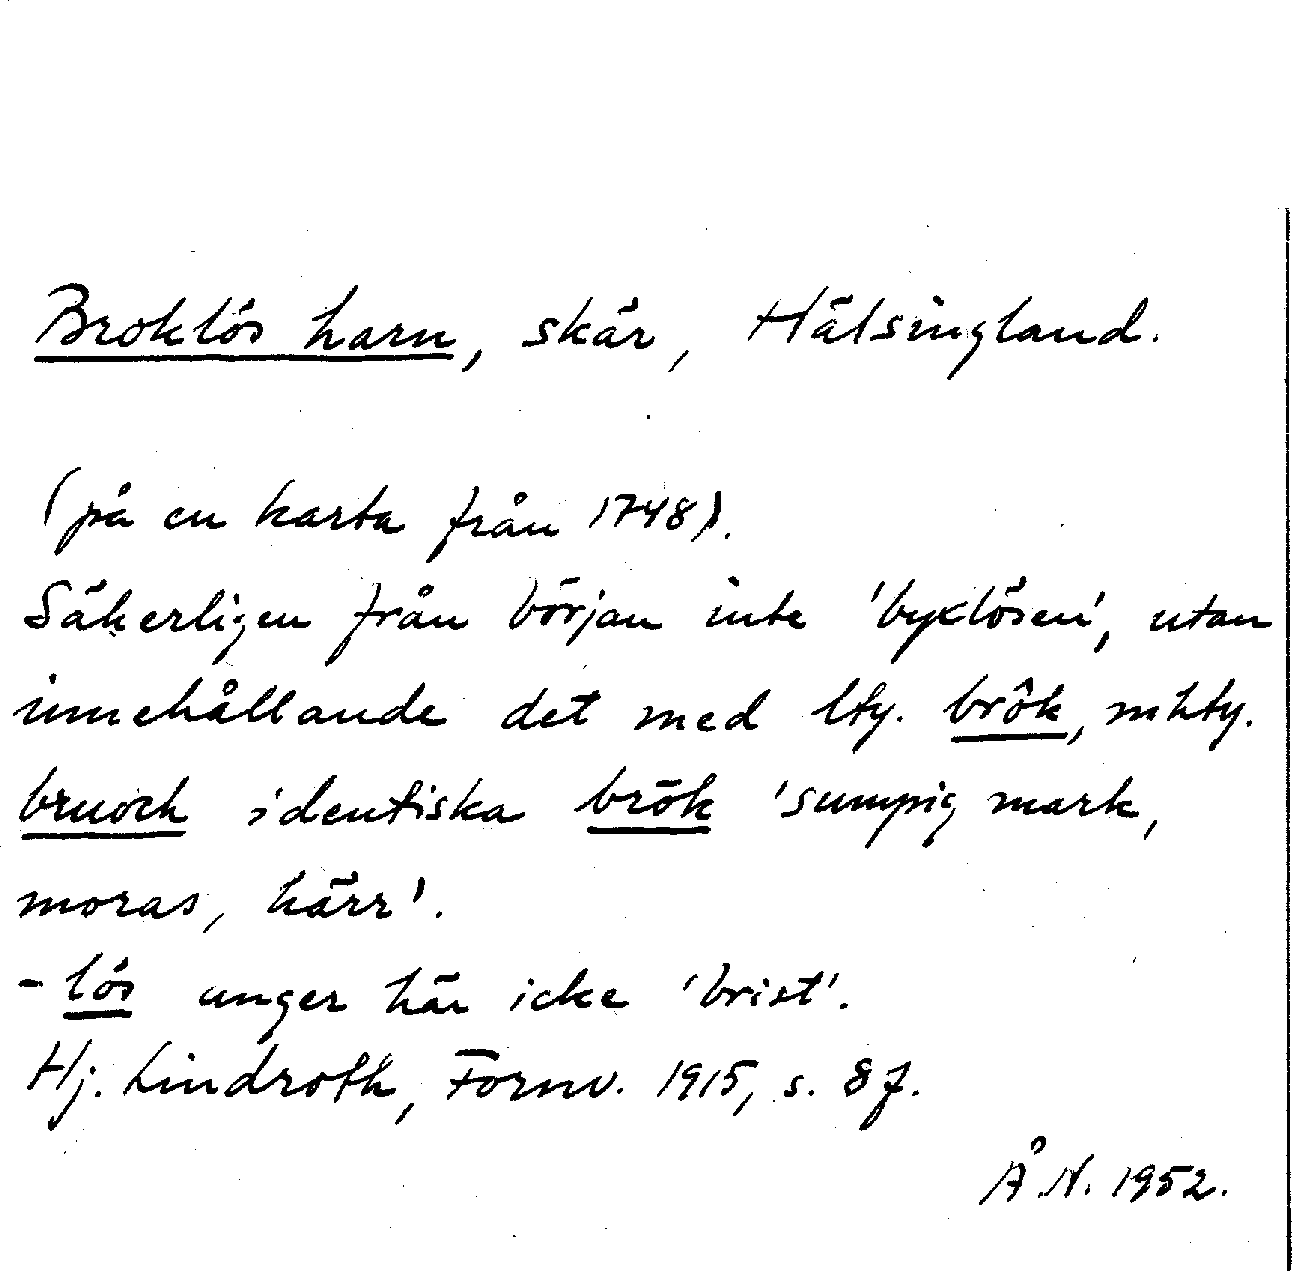 Broklös harn, skär, Hälsingland.
(på en karta från 1748).
Säkerligen från början inte 'byxlösen', utan
innehållande det med lty. brôk, mhty.
bruoch identiska brōk 'sumpig mark,
moras, kärr'.
-lös anger här icke 'brist'.
Hj. Lindroth, Fornv. 1915, s. 8 f.
Å N. 1952.